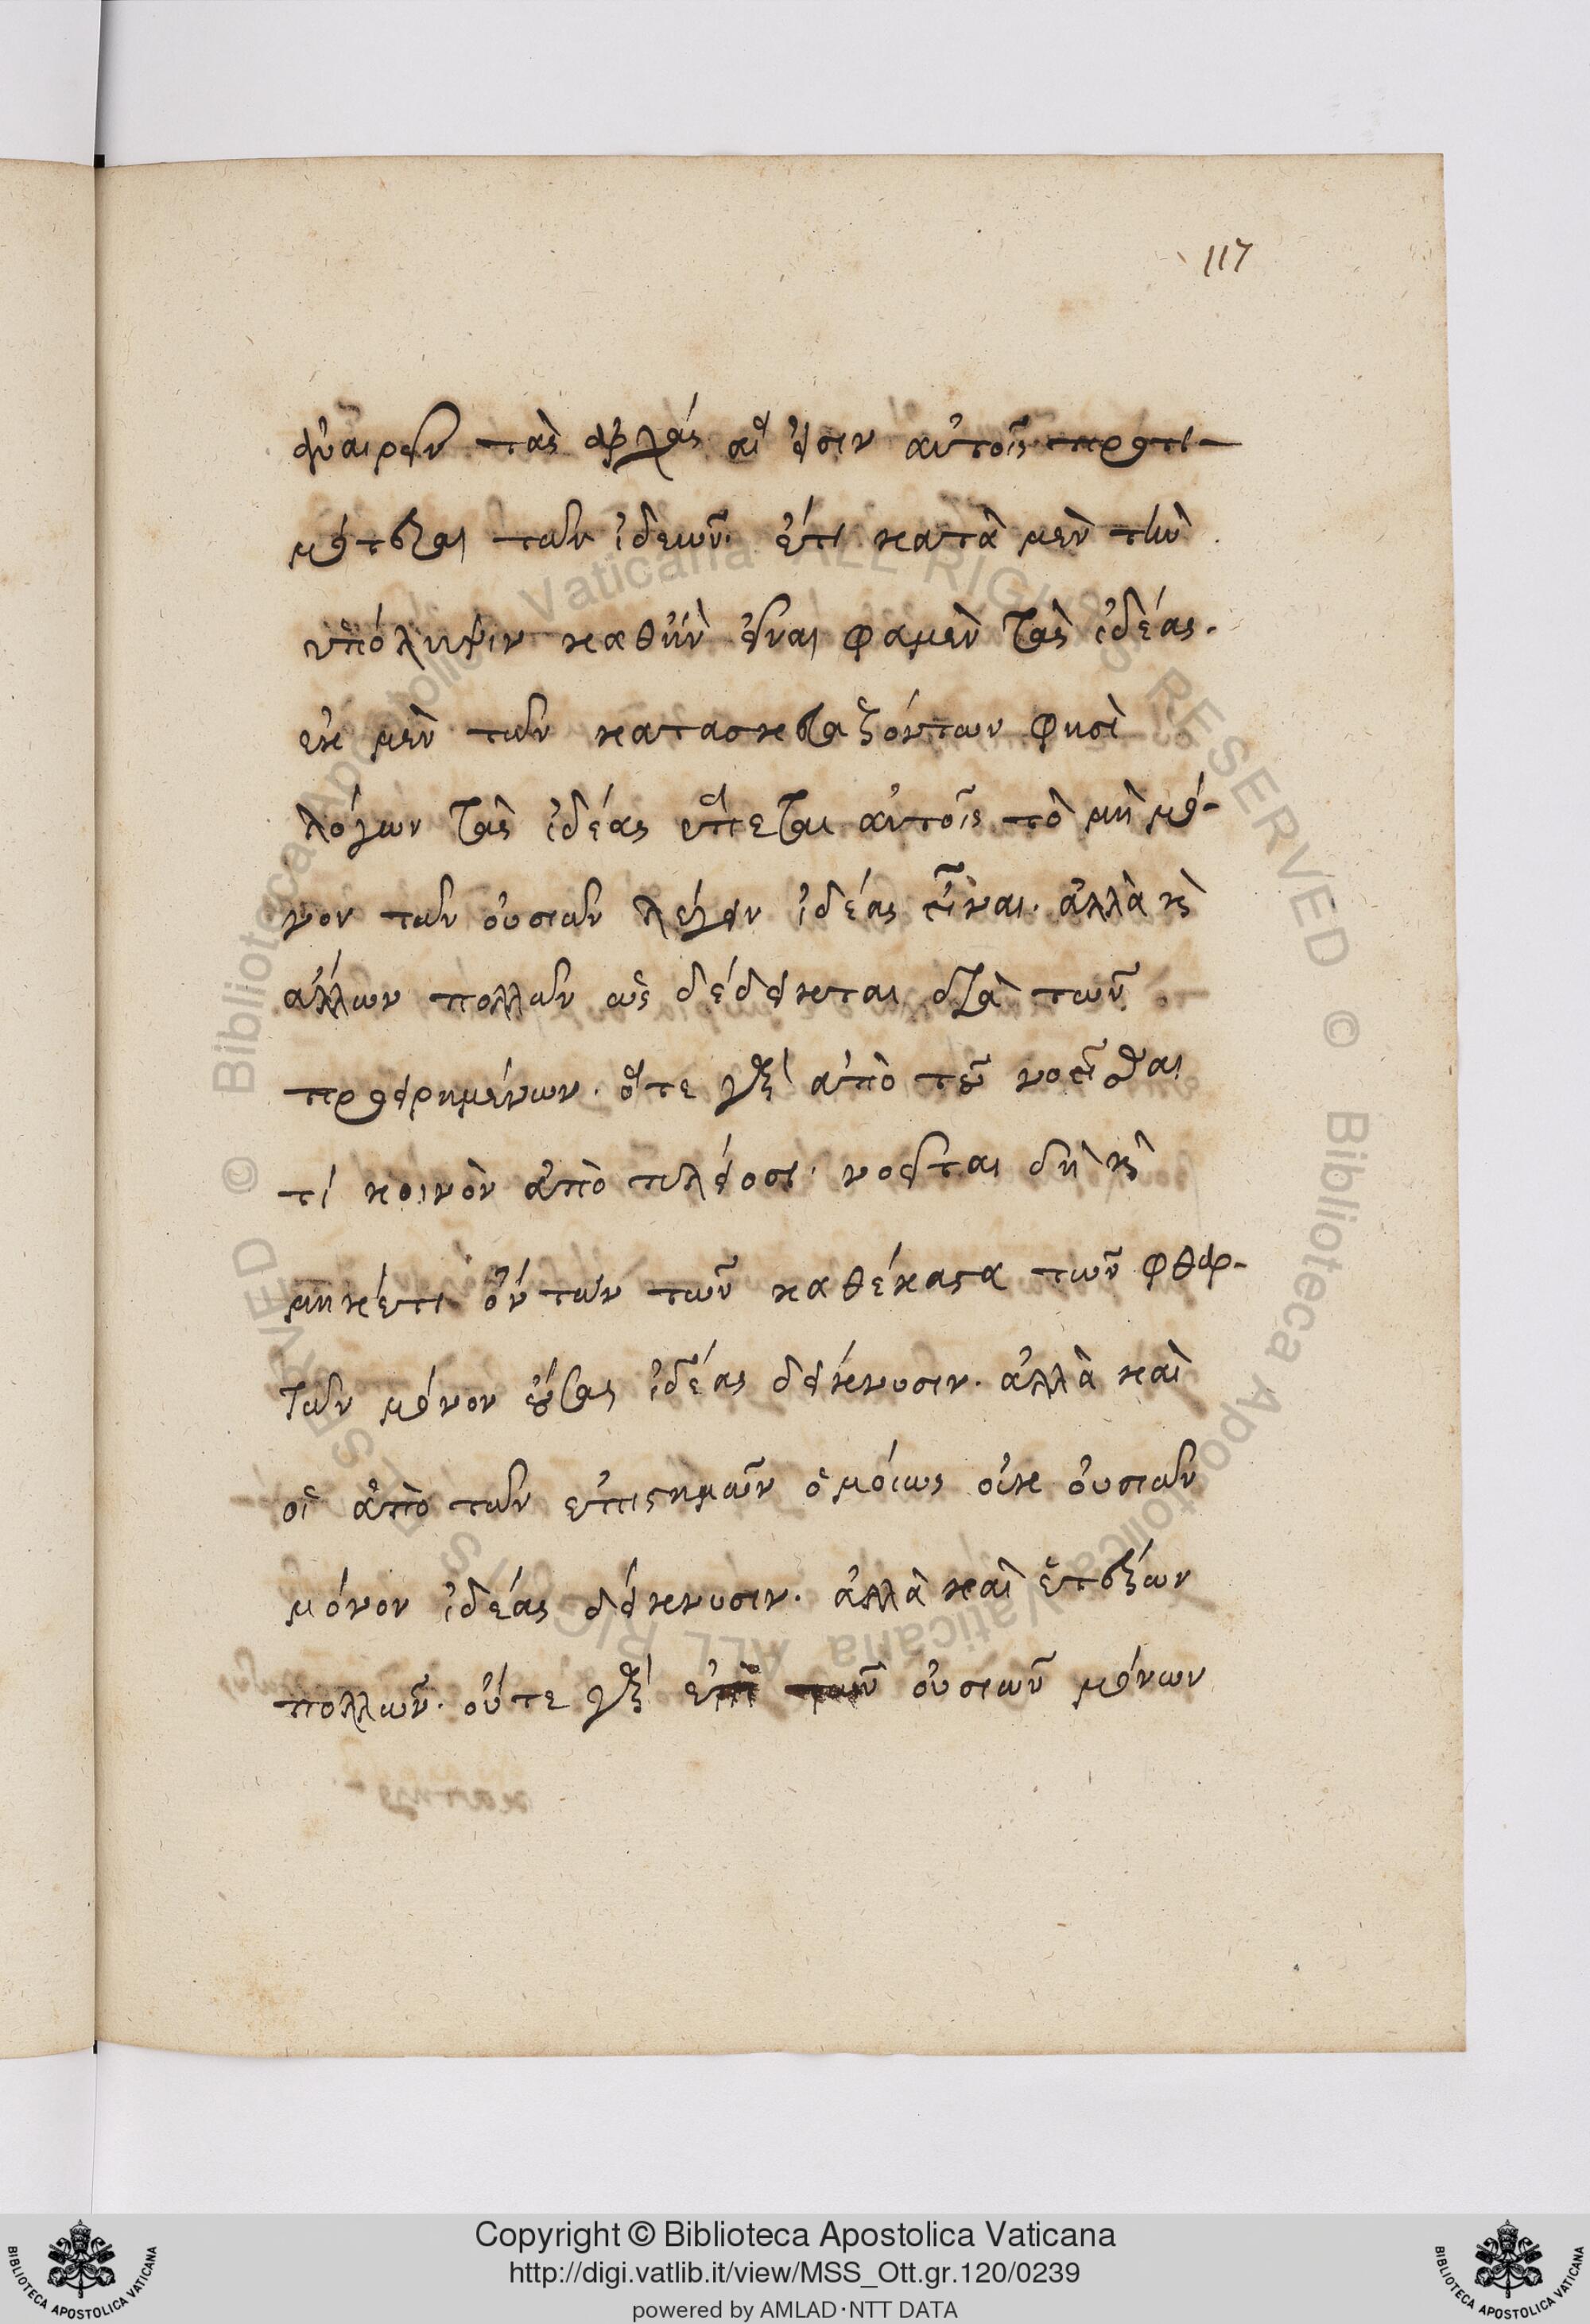 117
ἀναιρεῖν τὰς ἀρχάς αἵ εἰσιν αὐτοῖς προτι-
μότεραι τῶν ἰδεῶν. ἔτι κατὰ μὲν τὴν
ὑπόληψιν καθ' ἣν εἶναι φαμὲν τὰς ἰδέας.
ἐκ μὲν τῶν κατασκευαζόντων φησὶ
λόγων τὰς ἰδέας ἕπεται αὐτοῖς τὸ μὴ μό-
νον τῶν οὐσιῶν λέγειν ἰδέας εἶναι. ἀλλὰ κ̀
ἄλλων πολλῶν ὡς δέδεικται διὰ τῶν
προειρημένων. ὅτε γὰρ ἀπὸ τοῦ νοεῖσθαι
τί κοινὸν ἀπὸ πλείοσι. νοεῖται δὴ κ̀
μηκέτι ὄντων τῶν καθέκαστα τῶν φθαρ-
τῶν μόνον οὔσας ἰδέας δείκνυσιν. ἀλλὰ καὶ
οἱ ἀπὸ τῶν ἐπιστημῶν ὁμοίως οὐκ οὐσιῶν
μόνον ἰδέας δείκνυσιν. ἀλλὰ καὶ ἑτέρων
πολλῶν. οὔτε γὰρ ἐπὶ τῶν οὐσιῶν μόνων
Copyright © Biblioteca Apostolica Vaticana
http://digi.vatlib.it/view/MSS_Ott.gr.120/0239
powered by AMLAD·NTT DATA
BIBLIOTECA APOSTOLICA VATICANA
BIBLIOTECA APOSTOLICA VATICANA
© Biblioteca Apostolica Vaticana ALL RIGHTS RESERVED © Biblioteca Apostolica Vaticana ALL RIGHTS RESERVED